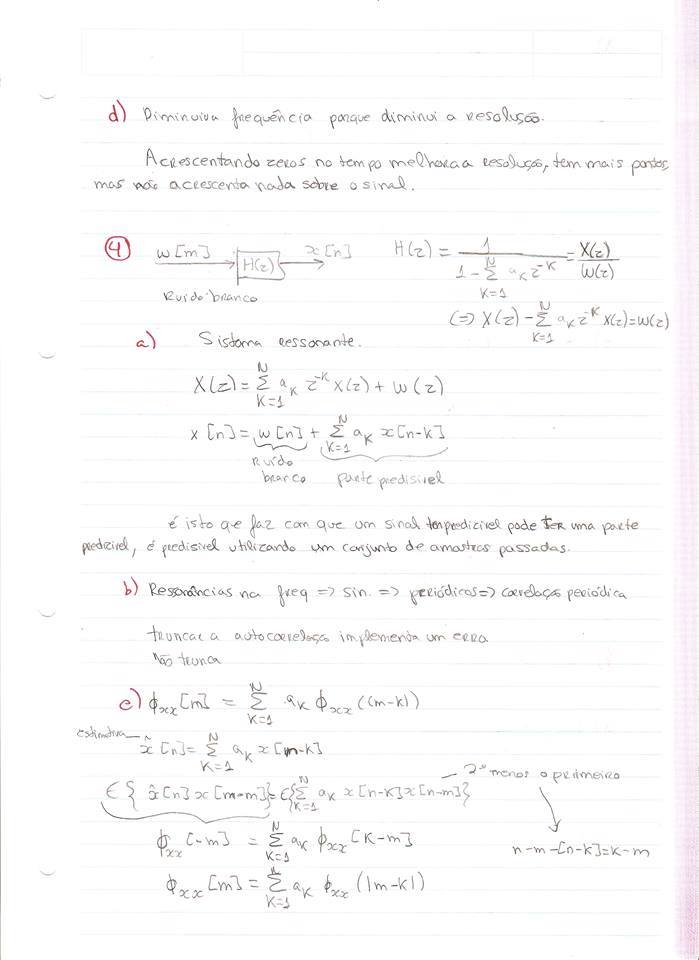 d) Diminuiva frequência porque diminui a resolução.
Acrescentando zeros no tempo melhora a resolução, tem mais pontos,
mas não acrescenta nada sobre o sinal.
4 w[m] → H(z) → x[n] H(z) = 1 / (1 - Σ_{K=1}^{N} a_K z^{-K}) = X(z)/W(z)
Ruido branco
(=) X(z) - Σ_{K=1}^{N} a_K z^{-K} X(z) = W(z)
a) Sistema ressonante.
X(z) = Σ_{K=1}^{N} a_K z^{-K} X(z) + W(z)
x[n] = w[n] + Σ_{K=1}^{N} a_K x[n-k]
Ruído branco parte predisivel
é isto qe faz com que um sinal predizivel pode ter uma parte
predizivel, é predisivel utilizando um conjunto de amostras passadas.
b) Ressonâncias na freq => sin. => periódicos => correlação periódica
truncar a autocorrelação implementa um erro
Não trunca
c) ϕ_xx[m] = Σ_{K=1}^{N} a_K ϕ_xx((m-k))
estimativa — x̂[n] = Σ_{K=1}^{N} a_K x[m-k]
— 2º menos o primeiro
ε{x̂[n] x[m-m]} = ε{Σ_{K=1}^{N} a_K x[n-k] x[n-m]}
ϕ_xx[-m] = Σ_{K=1}^{N} a_K ϕ_xx[K-m] n-m-[n-k]=k-m
ϕ_xx[m] = Σ_{K=1}^{N} a_K ϕ_xx(|m-k|)